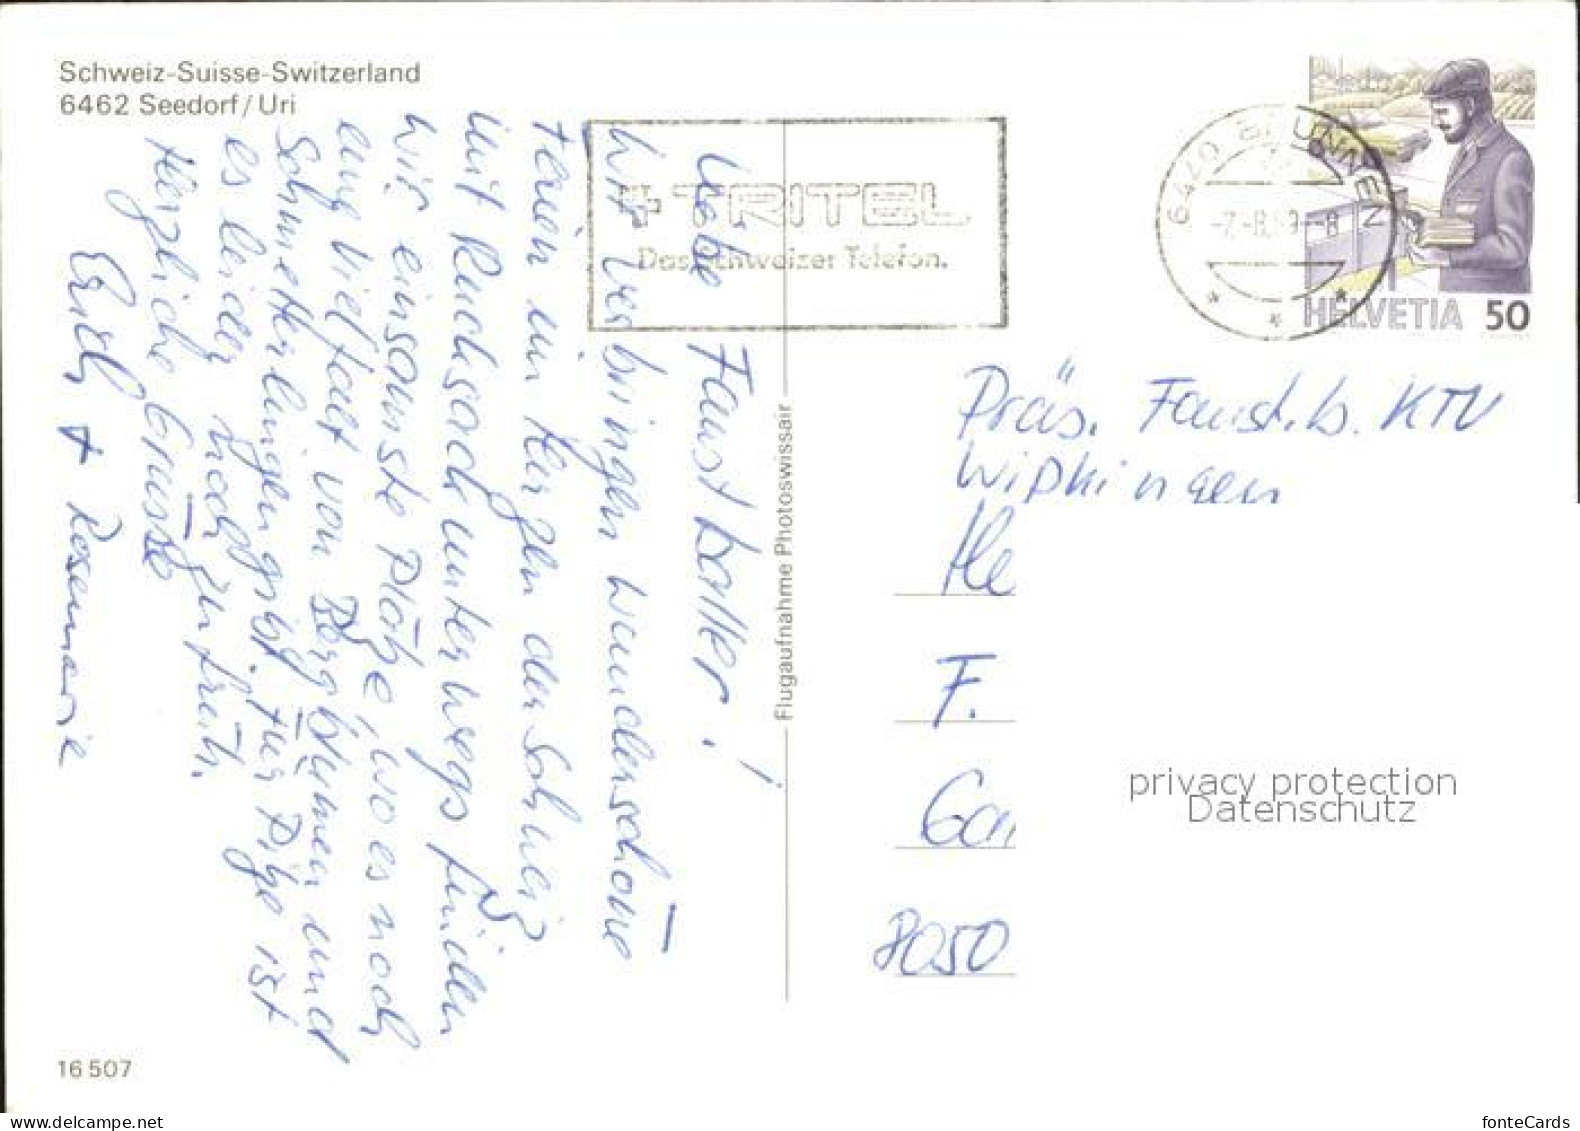 Schweiz-Suisse-Switzerland
6462 Seedorf/Uri
Liebe Faustballer!
Wir verbringen wunderschöne
Ferien im Herzen der Schweiz
Mit Rucksack unterwegs finden
wir einsamste Plätze, wo es noch
eine Vielfalt von Bergblumen und
Schmetterlingen gibt. Für Pilze ist
es leider noch zu früh.
Herzliche Grüsse
Erich + Rosemarie
16507
Flugaufnahme Photoswissair
+TRITEL
Das Schweizer Telefon.
6440 BRUNNEN
-7.-8.89-8
HELVETIA 50
Präs. Faustb. KTV
Wipkingen
He
F.
Gan
8050
privacy protection
Datenschutz
fonteCards
www.delcampe.net